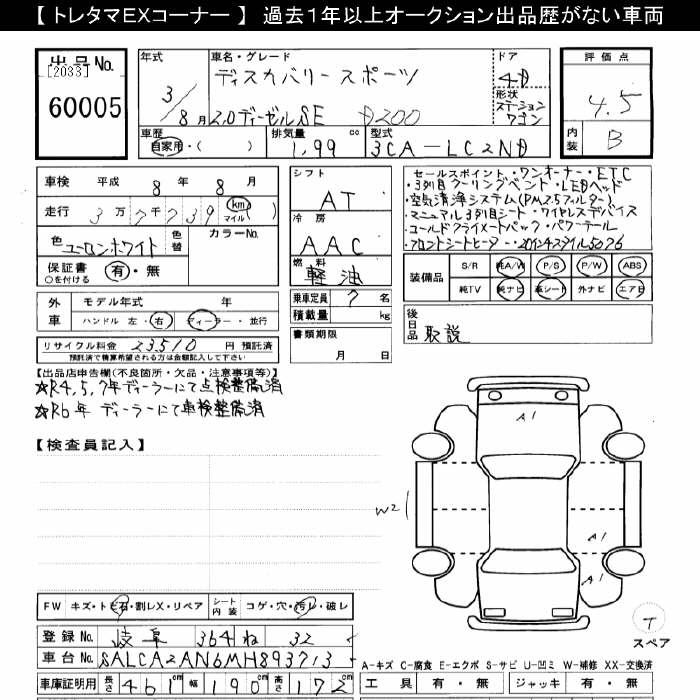 【 トレタマEXコーナー 】 過去1年以上オークション出品歴がない車両
出品No.
[2033]
60005
年式
3/8月
車名・グレード
ディスカバリースポーツ
2.0 ディーゼル SE D200
ドア
4D
形状
ステーションワゴン
評価点
4.5
内装
B
車歴
自家用・( )
排気量
1.99 cc
型式
3CA-LC2ND
車検 平成 8 年 8 月
走行 3万7千739 km マイル
色 ユーロンホワイト 色替
カラーNo.
保証書 有・無
○を付ける
シフト
AT
冷房
AAC
燃料
軽油
乗車定員 7 名
積載量 kg
書類期限
月 日
セールスポイント・ワンオーナー・ETC
・3列目クーリングベント・LEDヘッド
・空気清浄システム(PM2.5フィルター)
・マニュアル3列目シート・ワイヤレスデバイス
・コールドクライメートパック・パワーテール
・フロントシートヒーター・20インチスタイル5076
装備品
S/R 純A/W P/S P/W ABS
純TV 純ナビ 革シート 外ナビ エアB
外車
モデル年式 年
ハンドル 左・右 ディーラー・並行
リサイクル料金 23510 円 預託済
預託済で精算希望される方は金額記入して下さい
後日品 取説
【出品店申告欄(不良箇所・欠品・注意事項等)】
★R4,5,7年ディーラーにて点検整備済
★R6年 ディーラーにて車検整備済
【検査員記入】
A1
W2
A1
A1
T
スペア
FW キズ・トビ石・割レX・リペア
シート内装 コゲ・穴・汚レ・破レ
登録No. 岐阜 364 ね 32
車台No. SALCA2AN6MH893713
車庫証明用 長さ 461 cm 幅 190 cm 高さ 172 cm
A-キズ C-腐食 E-エクボ S-サビ U-凹ミ W-補修 XX-交換済
工具 有・無 ジャッキ 有・無